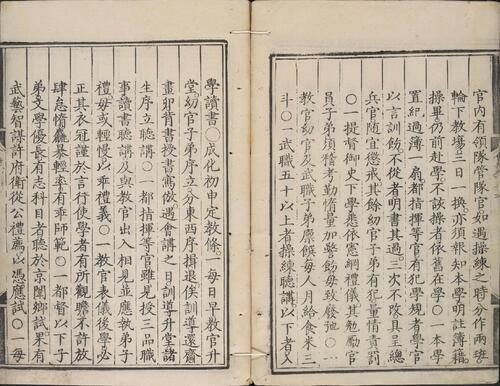 官內有領隊管隊官如遇操練之時分作兩班
輪下教場三日一換亦須報知本學明註簿籍
操畢仍前赴學不該操者依舊在學○一本學
置紀過簿一扇都指揮等官有犯學規者學官
以言訓飭不從者明書其過三次不改具呈總
兵官隨宜懲戒其餘幼官子弟有犯量情責罰
○一提督御史下學悉依憲綱禮儀其勉勵官
員子弟須稽考勤惰量加警飭每次不過三人
教官幼官及武職子弟廩饌每人月給食米三
斗○一武職五十以上者操練聽講以下者入
學讀書○成化初申定教條一每日早教官升
堂幼官子弟序立分東西序揖退俟訓導還齋
畫卯背書授書寫倣遇會講之日訓導升堂諸
生序立聽講○一都指揮等官雖見授三品職
事讀書聽講及與教官出入相見並應執弟子
禮毋或輕慢以乖禮義○一教官表儀後學必
正其衣冠謹於言行使學者有所觀瞻不許放
肆怠惰麤暴輕率有乖師範○一都督以下子
弟文學優長有志科目者聽於京闈鄉試果有
武藝智謀許府衛從公禮薦以憑應試○一每